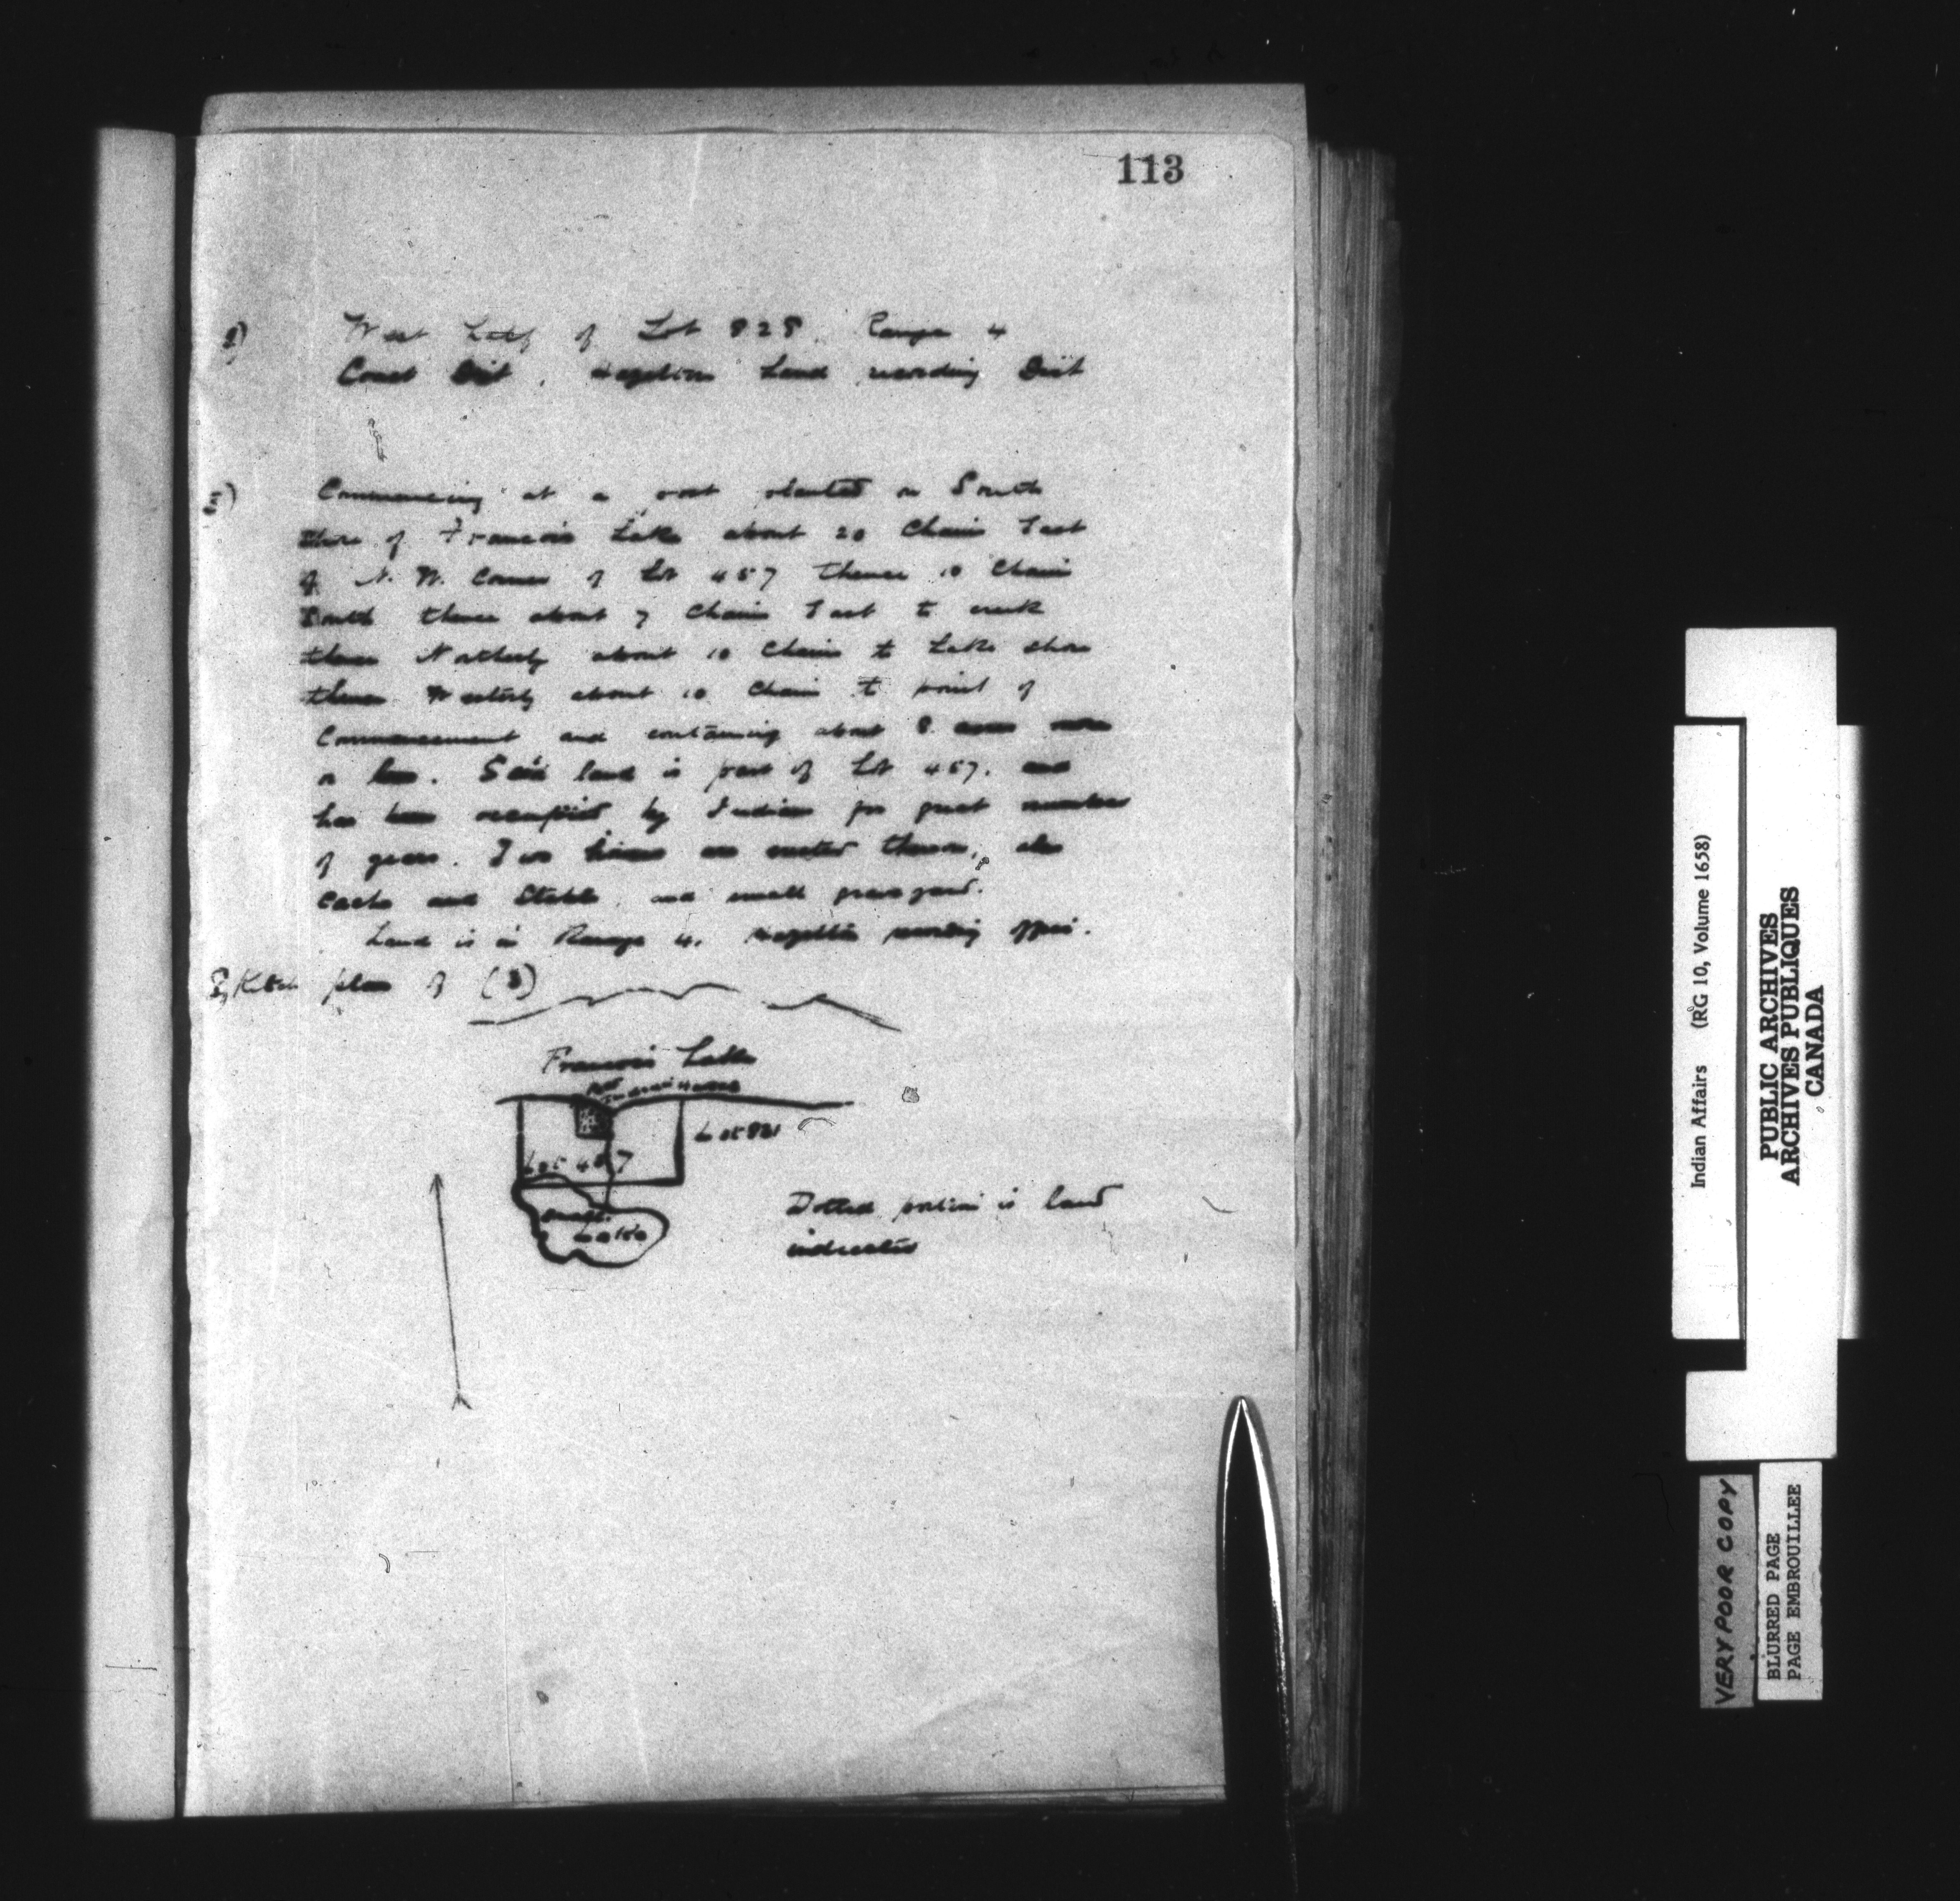 113
2) West half of Lot 828, Range 4
Coast Dist, Hazelton Land recording Dist
3) Commencing at a post planted on South
Shore of Francois Lake about 20 Chains East
of N. W. Corner of Lot 457 thence 10 Chains
South thence about 7 Chains East to creek
thence Northerly about 10 Chains to Lake shore
thence Westerly about 10 Chains to point of
Commencement and containing about 8 acres more
or less. Said land is part of Lot 457. and
has been occupied by Indians for great number
of years. Two houses are erected thereon, also
Cache and Stable, and small graveyard.
Land is in Range 4. Hazelton recording office.
Sketch plan of (3)
Francois Lake
Lot 821
Lot 457
Small
Lake
Dotted portion is land
indicated
Indian Affairs (RG 10, Volume 1658)
PUBLIC ARCHIVES
ARCHIVES PUBLIQUES
CANADA
VERY POOR COPY
BLURRED PAGE
PAGE EMBROUILLEE